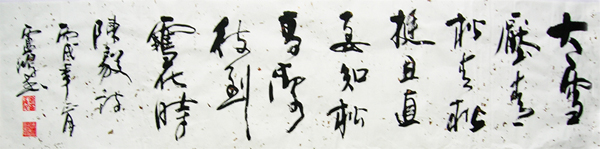 大雪
壓青
松青松
挺且直
要知松
高潔
待到
雪化時
陳毅詩
丙戌年三月